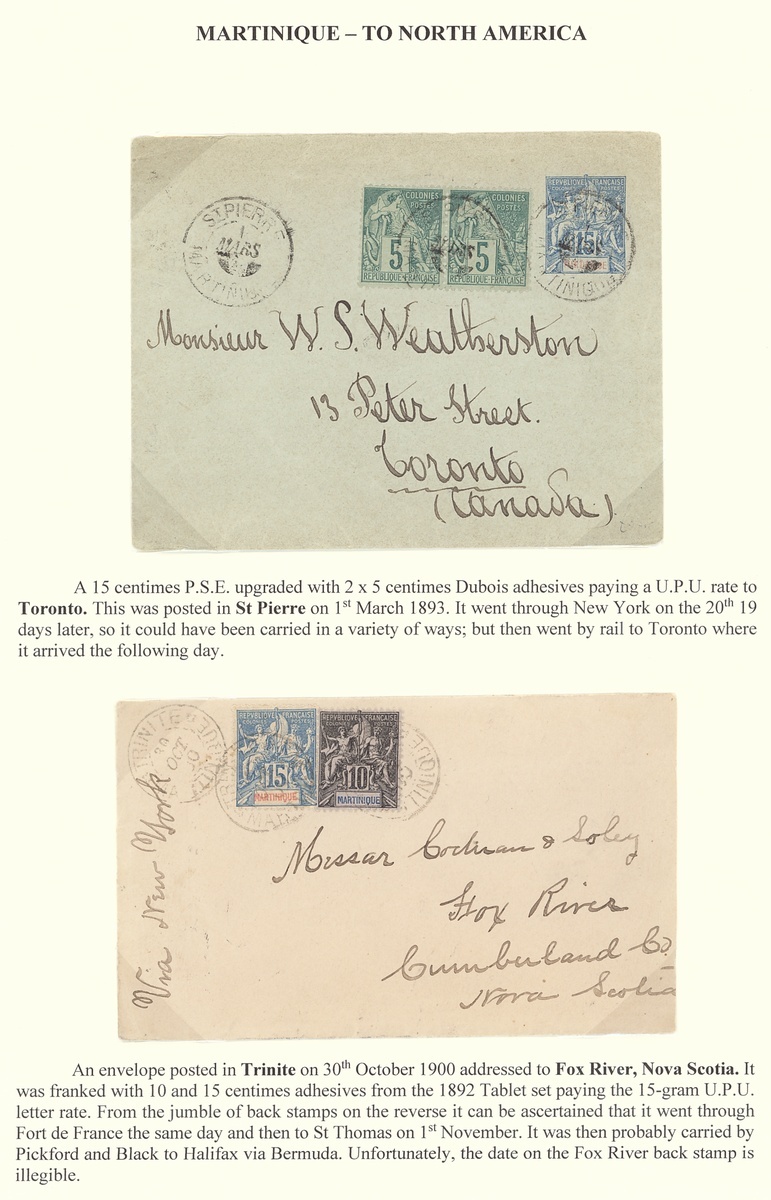 MARTINIQUE – TO NORTH AMERICA
ST PIERRE
1
MARS
MARTINIQUE
COLONIES
POSTES
5
REPUBLIQUE FRANÇAISE
COLONIES
POSTES
5
REPUBLIQUE FRANÇAISE
MARS
REPVBLIQVE FRANÇAISE
15
MARTINIQUE
Monsieur W. S. Weatherston
13 Peter Street.
Toronto
(Canada)
A 15 centimes P.S.E. upgraded with 2 x 5 centimes Dubois adhesives paying a U.P.U. rate to
Toronto. This was posted in St Pierre on 1st March 1893. It went through New York on the 20th 19
days later, so it could have been carried in a variety of ways; but then went by rail to Toronto where
it arrived the following day.
TRINITE
30
OCT
REPVBLIQVE FRANÇAISE
COLONIES POSTES
15
MARTINIQUE
REPVBLIQVE FRANÇAISE
COLONIES POSTES
10
MARTINIQUE
Via New York
Messar Cochran & Soley
Fox River
Cumberland Co.
Nova Scotia
An envelope posted in Trinite on 30th October 1900 addressed to Fox River, Nova Scotia. It
was franked with 10 and 15 centimes adhesives from the 1892 Tablet set paying the 15-gram U.P.U.
letter rate. From the jumble of back stamps on the reverse it can be ascertained that it went through
Fort de France the same day and then to St Thomas on 1st November. It was then probably carried by
Pickford and Black to Halifax via Bermuda. Unfortunately, the date on the Fox River back stamp is
illegible.